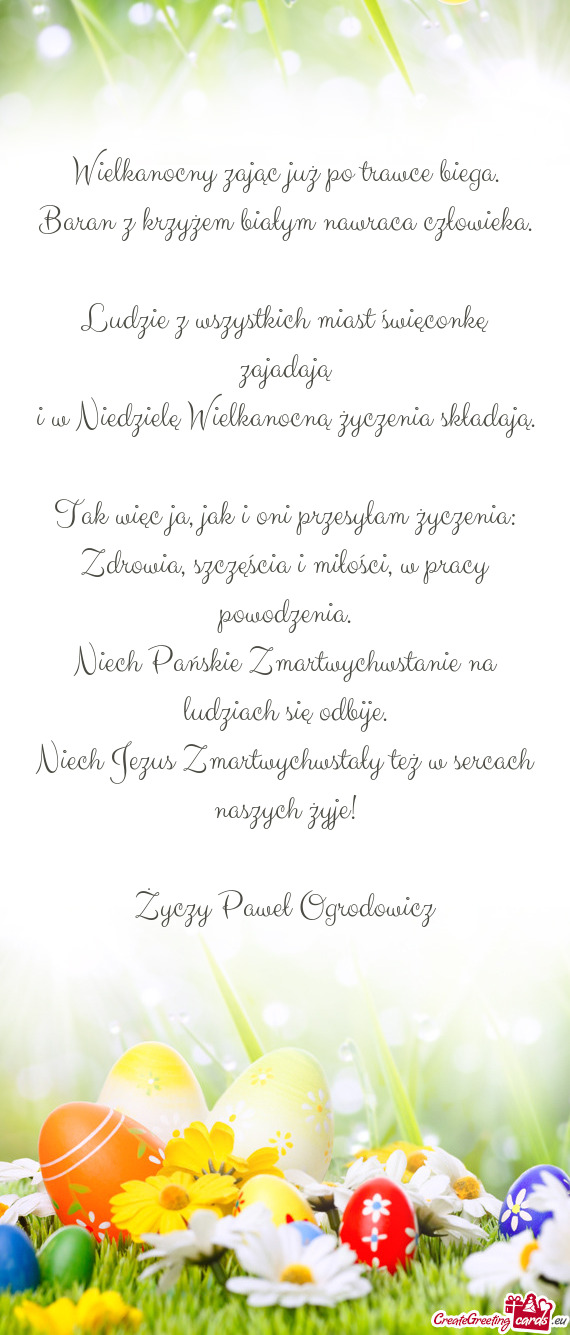 Wielkanocny zając już po trawce biega.
Baran z krzyżem białym nawraca człowieka.
Ludzie z wszystkich miast święconkę
zajadają
i w Niedzielę Wielkanocną życzenia składają.
Tak więc ja, jak i oni przesyłam życzenia:
Zdrowia, szczęścia i miłości, w pracy
powodzenia.
Niech Pańskie Zmartwychwstanie na
ludziach się odbije.
Niech Jezus Zmartwychwstały też w sercach
naszych żyje!
Życzy Paweł Ogrodowicz
CreateGreeting cards .eu